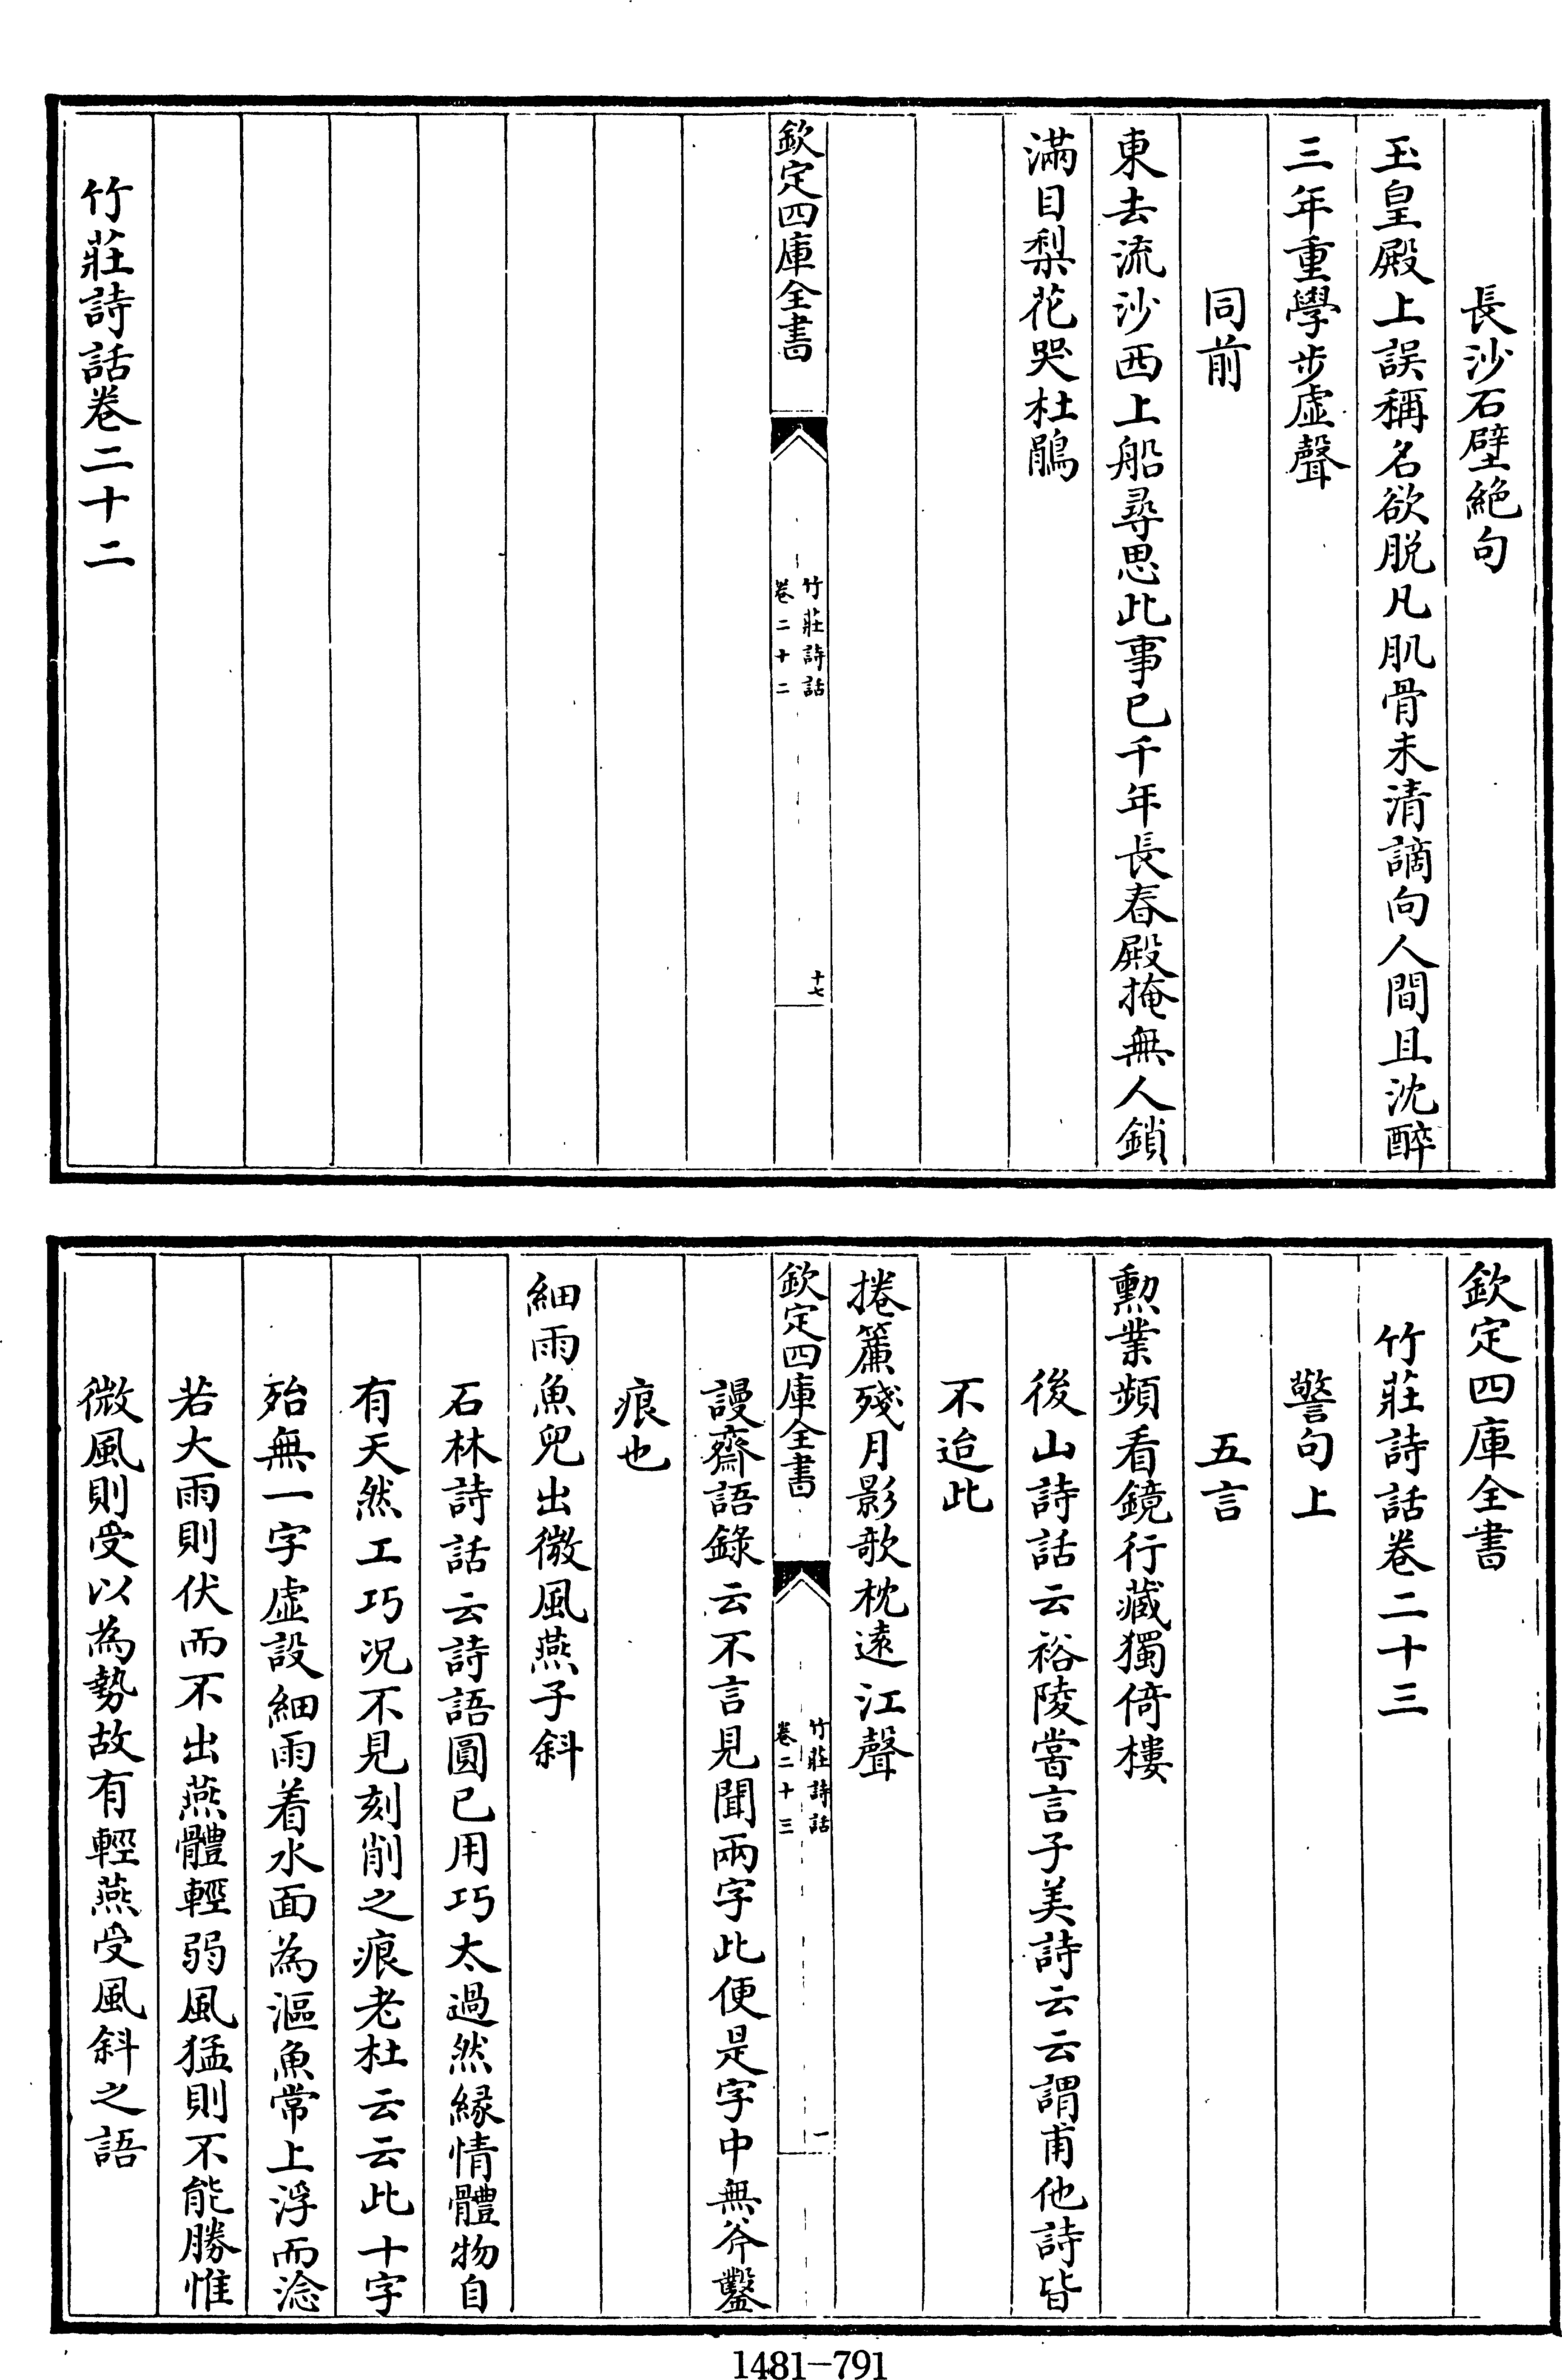 長沙石壁絶句
玉皇殿上誤稱名欲脱凡肌骨未清謫向人間且沈醉
三年重學步虛聲
同前
東去流沙西上船尋思此事已千年長春殿掩無人鎖
滿目梨花哭杜鵑
欽定四庫全書
竹莊詩話
卷二十二
十七
竹莊詩話卷二十二
欽定四庫全書
竹莊詩話卷二十三
警句上
五言
勲業頻看鏡行藏獨倚樓
後山詩話云裕陵嘗言子美詩云云謂甫他詩皆
不迨此
捲簾殘月影欹枕遠江聲
欽定四庫全書
竹莊詩話
卷二十三
一
謾齋語錄云不言見聞兩字此便是字中無斧鑿
痕也
細雨魚兒出微風燕子斜
石林詩話云詩語圓已用巧太過然緣情體物自
有天然工巧况不見刻削之痕老杜云云此十字
殆無一字虛設細雨着水面為漚魚常上浮而淰
若大雨則伏而不出燕體輕弱風猛則不能勝惟
微風則受以為勢故有輕燕受風斜之語
1481-791